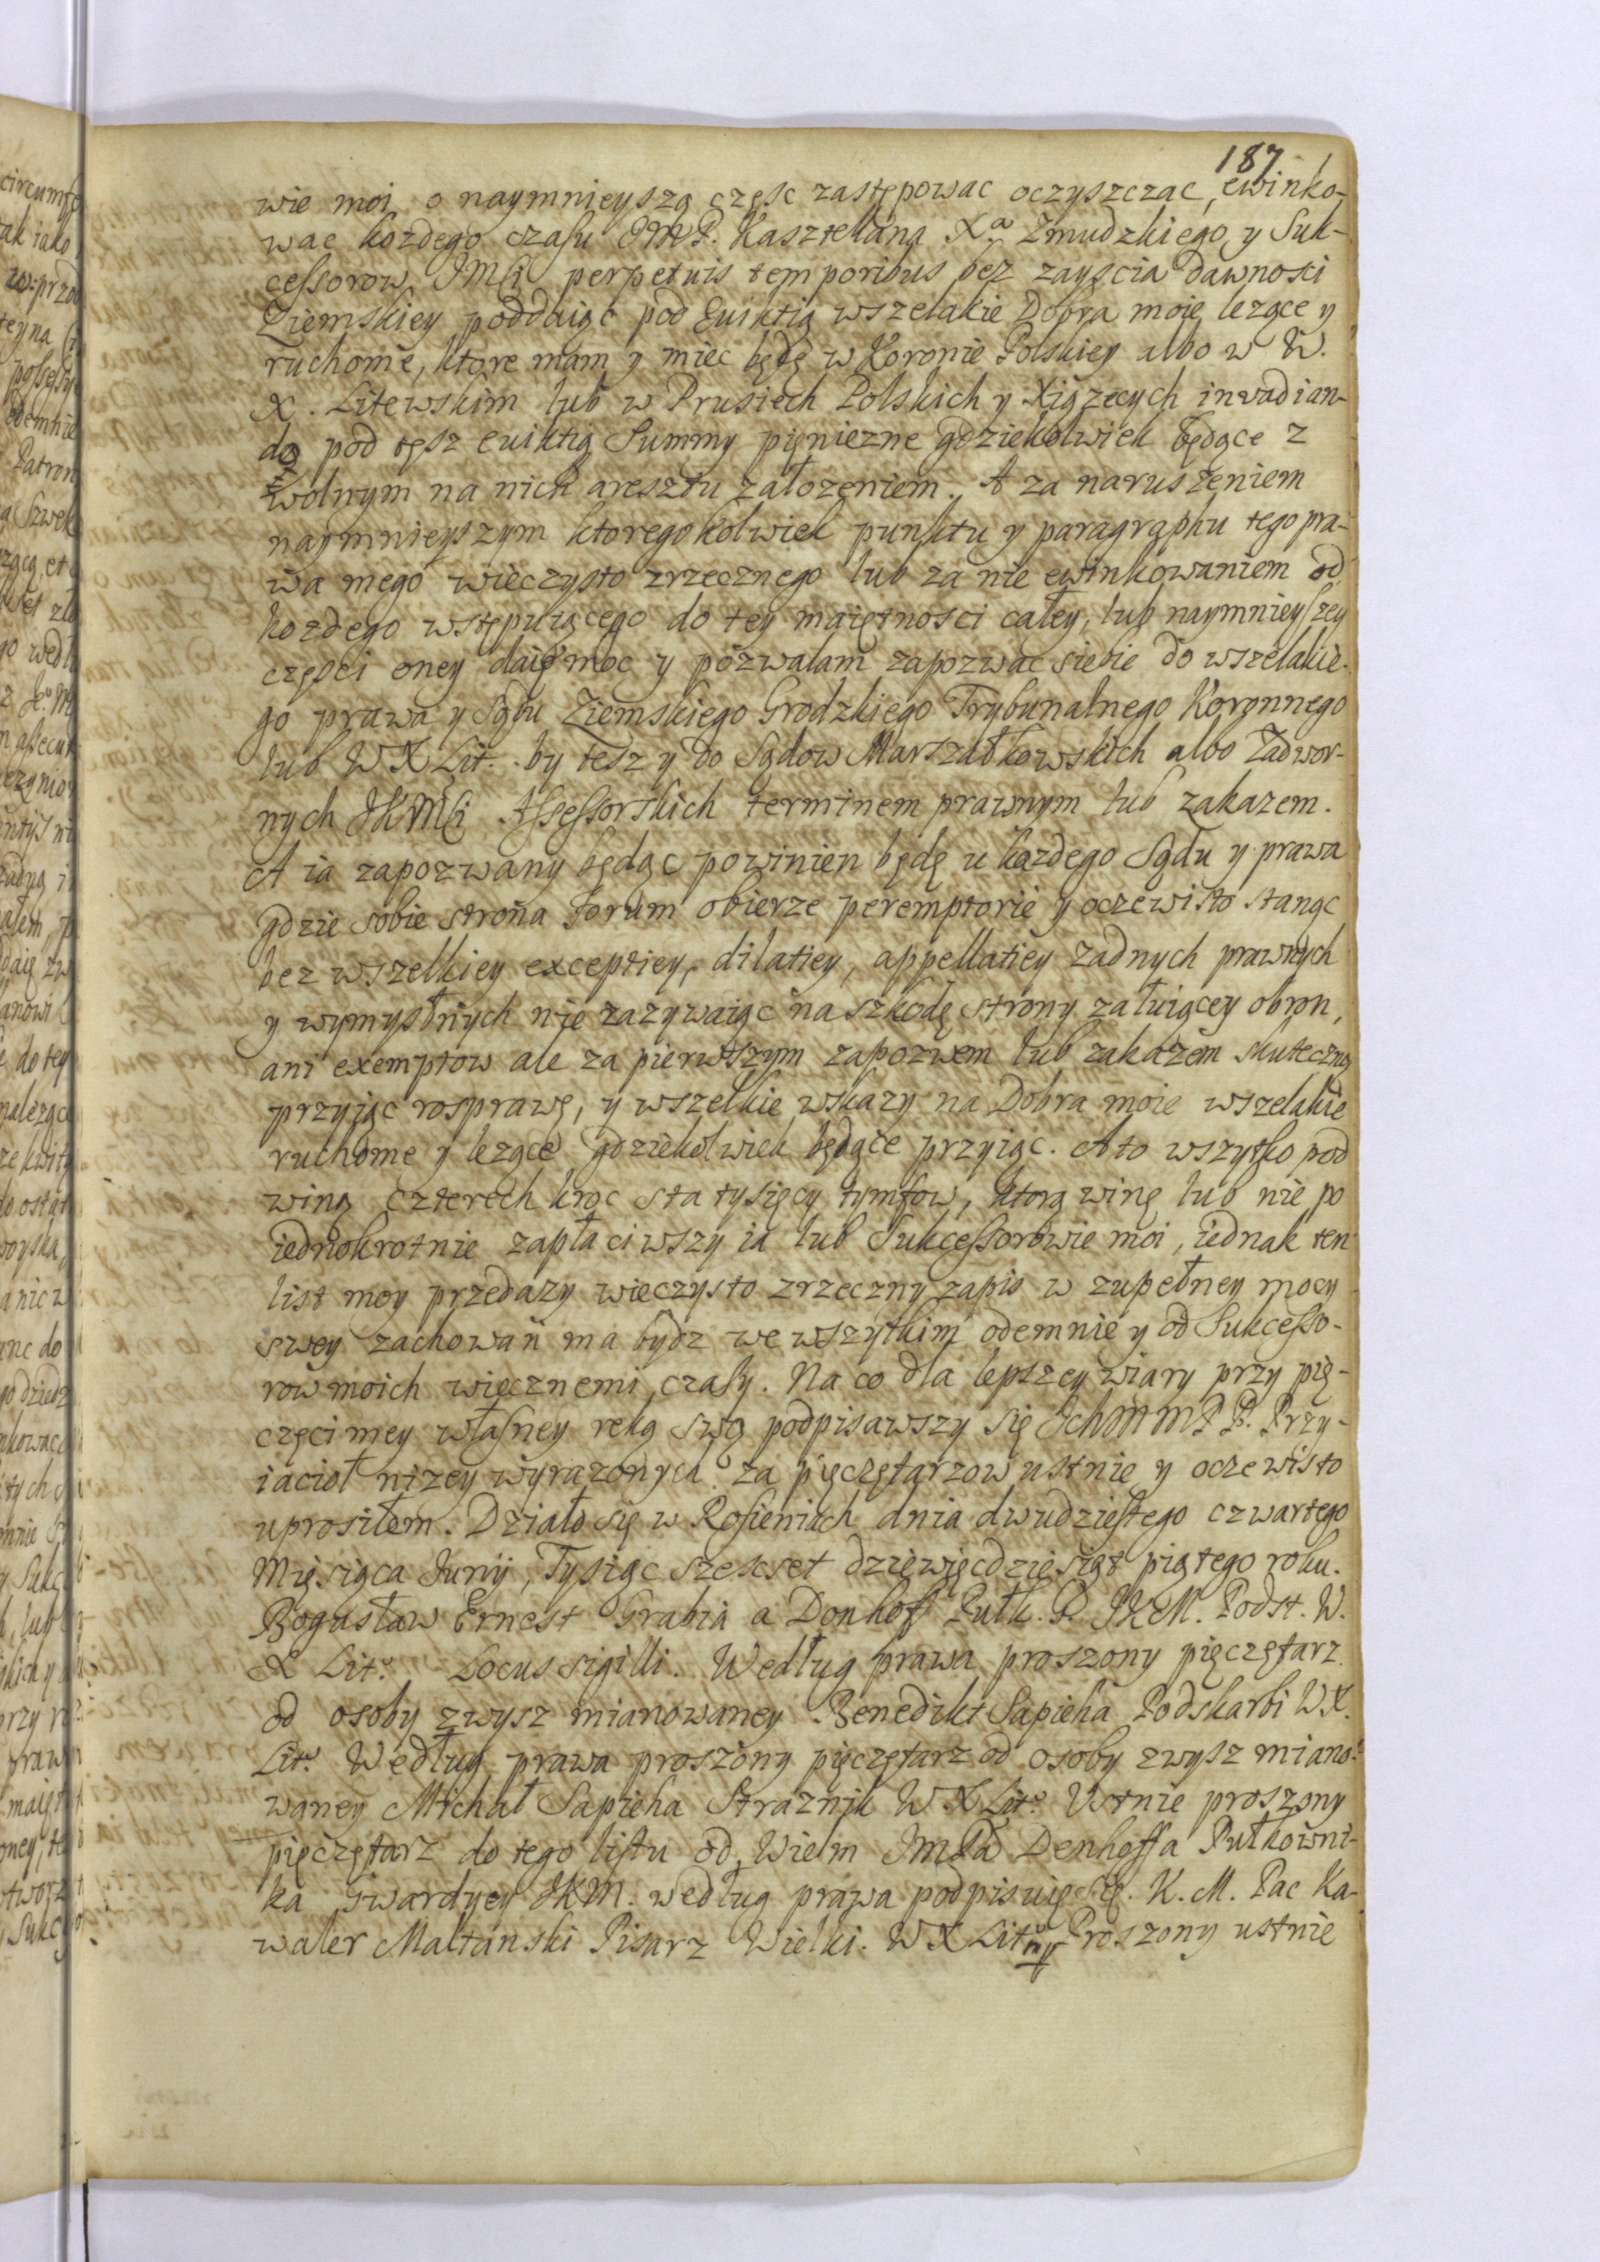 187
wie moi o naymnieyszą częsc zastępowac oczyszczac, ewinko-
wac kozdego czasu JMP. Kasztelana Xa Zmudzkiego y Suk-
cessorow JMSi perpetuis temporibus bez zayscia dawnosci
Ziemskiey poddaiąc pod Euiktią wszelakie Dobra moie lezące y
ruchome, ktore mam y miec będę w Koronie Polskiey albo w W.
X. Litewskim lub w Prusiech Polskich y Xiązecych invadian-
do pod tęsz euiktią Summy pięniezne gdziekolwiek będące z
wolnym na nich aresztu załozeniem. A za naruszeniem
naymnieyszym ktoregokolwiek punktu y paragraphu tego pra-
wa mego wieczysto zrzecznego lub za nie ewinkowaniem od
kozdego wstępuiącego do tey maiętnosci całey, lub naymnieyszey
częsci oney daię moc y pozwalam zapozwac siebie do wszelakie-
go prawa y Sądu Ziemskiego Grodzkiego Trybunalnego Koronnego
lub W X Lit. by tesz y do Sądow Marszałkowskich albo Zadwor-
nych JKMSi Assessorskich terminem prawnym lub zakazem.
A ia zapozwany będąc powinien będę u kazdego Sądu y prawa
gdzie sobie strona Forum obierze peremptorie y oczewisto stanąc
bez wszelkiey exceptiey, dilatiey, appellatiey zadnych prawnych
y wymyslnych nie zazywaiąc na szkodę strony załuiącey obron,
ani exemptow ale za pierwszym zapozwem lub zakazem skuteczną
przyiąc rosprawę, y wszelkie wskazy na Dobra moie wszelakie
ruchome y lezące gdziekolwiek będące przyiąc. A to wszytko pod
winą czterech kroc sta tysięcy tymfow, ktorą winę lub nie po
iednokrotnie zapłaciwszy ia lub Sukcessorowie moi, iednak ten
list moy przedazy wieczysto zrzeczny zapis w zupełney mocy
swey zachowan ma bydz we wszytkim odemnie y od Sukcesso-
row moich wiecznemi czasy. Na co dla lepszey wiary przy pię-
częci mey własney ręką swą podpisawszy się JchMM PP. Przy-
iacioł nizey wyrazonych za pięczętarzow ustnie y oczewisto
uprosiłem. Działo się w Rosieniach dnia dwudziestego czwartego
Miesiąca Junij, Tysiąc szescset dziewięcdziesiąt piątego roku.
Bogusław Ernest Grabia a Donhoff Pułk. G. JKM. Podst. W.
X Lit. Locus sigilli. Według prawa proszony pięczętarz
od osoby zwysz mianowaney Benedikt Sapieha Podskarbi WX.
Lit. Według prawa proszony pięczętarz od osoby zwysz miano-
waney Michał Sapieha Straznik W X Lit. Ustnie proszony
pięczętarz do tego listu od Wielm JmPa Denhoffa Pułkowni-
ka Gwardyey JKM. według prawa podpisuię się. K. M. Pac Ka-
waler Maltanski Pisarz Wielki W X Lit. Proszony ustnie